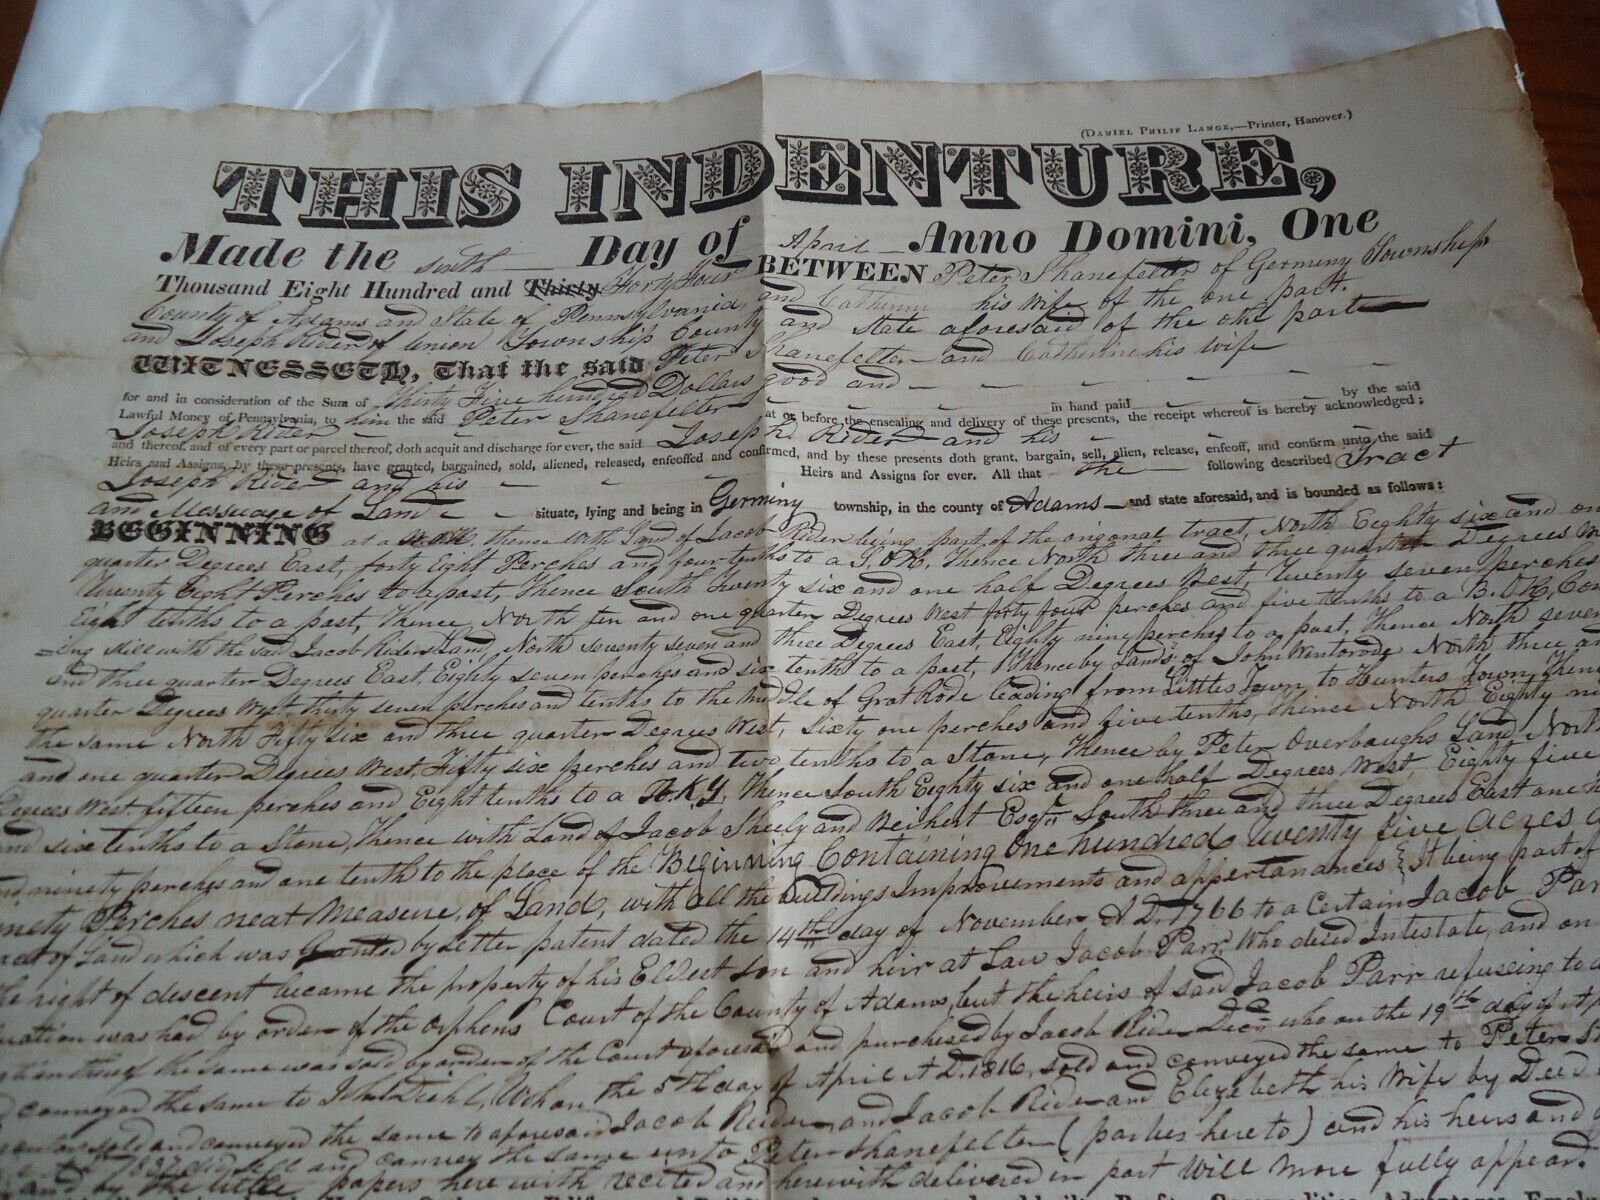 (Daniel Philip Lange,—Printer, Hanover.)
THIS INDENTURE,
Made the sixth Day of April Anno Domini, One
Thousand Eight Hundred and Thirty Forty Four BETWEEN Peter Shanefelter of Germiny Township
County of Adams and State of Pennsylvania, and Catherine his Wife of the one part.
and Joseph Rider of Union Township County and State aforesaid of the other part
WITNESSETH, That the said Peter Shanefelter and Catherine his Wife
for and in consideration of the Sum of Thirty Five hundred Dollars good and
Lawful Money of Pennsylvania, to him the said Peter Shanefelter in hand paid by the said
Joseph Rider at or before the ensealing and delivery of these presents, the receipt whereof is hereby acknowledged;
and thereof, and of every part or parcel thereof, doth acquit and discharge for ever, the said Joseph Rider and his
Heirs and Assigns, by these presents, have granted, bargained, sold, aliened, released, enfeoffed and confirmed, and by these presents doth grant, bargain, sell, alien, release, enfeoff, and confirm unto the said
Joseph Rider and his Heirs and Assigns for ever. All that the following described Tract
and Messuage of Land situate, lying and being in Germiny township, in the county of Adams and state aforesaid, and is bounded as follows:
BEGINNING at a thence with Land of Jacob Rider being part of the original tract, North Eighty six and one
quarter Degrees East, forty Eight Perches and four tenths to a thence North three and three quarter Degrees
Twenty Eight Perches to a post, Thence South Twenty six and one half Degrees West, Twenty seven perches
Eight tenths to a post, thence North ten and one quarter Degrees West forty four perches and five tenths to a
still with the said Jacob Riders Land, North seventy seven and three Degrees East, Eighty nine perches to a post, thence North seven
and three quarter Degrees East, Eighty seven perches and six tenths to a post, thence by Lands of John Wintrode North three and
quarter Degrees West, thirty seven perches and tenths to the Middle of Grat Rode leading from Littles Town to Hunters Town, Thence
the same North Fifty six and three quarter Degrees West, Sixty one perches and five tenths, thence North Eighty
and one quarter Degrees West, Fifty six perches and two tenths to a Stone, thence by Peter Overbaughs Land North
Degrees West fifteen perches and Eight tenths to a Thence South Eighty six and one half Degrees West, Eighty five
and six tenths to a Stone, thence with Land of Jacob Sheely and Esqr. South three and three Degrees East one
and ninety perches and one tenth to the place of the Beginning Containing One hundred Twenty five Acres
Perches neat Measure, of Land, with all the Buildings Improvements and appertanances It being part of
of Land which was Granted by Letter patent dated the 14th day of November A D. 1766 to a Certain Jacob Parr
the right of descent became the property of his Eldest son and heir at Law Jacob Parr Who desed Intestate, and on
was had by order of the Orphens Court of the County of Adams, but the heirs of said Jacob Parr refuseing to
the same was sold by order of the Court aforesaid and purchised by Jacob Rider Decd. who on the 19th day of
conveyed the same to John Diehl, Who on the 5th day of April A D. 1816, sold and conveyed the same to Peter
sold and conveyed the same to aforesaid Jacob Rider and Jacob Rider and Elizabeth his Wife by Deed
did sell and convey the same unto Peter Shanefelter (parties here to) and his heirs and
and by the title papers here with recited and herewith delivered in part Will more fully appear.